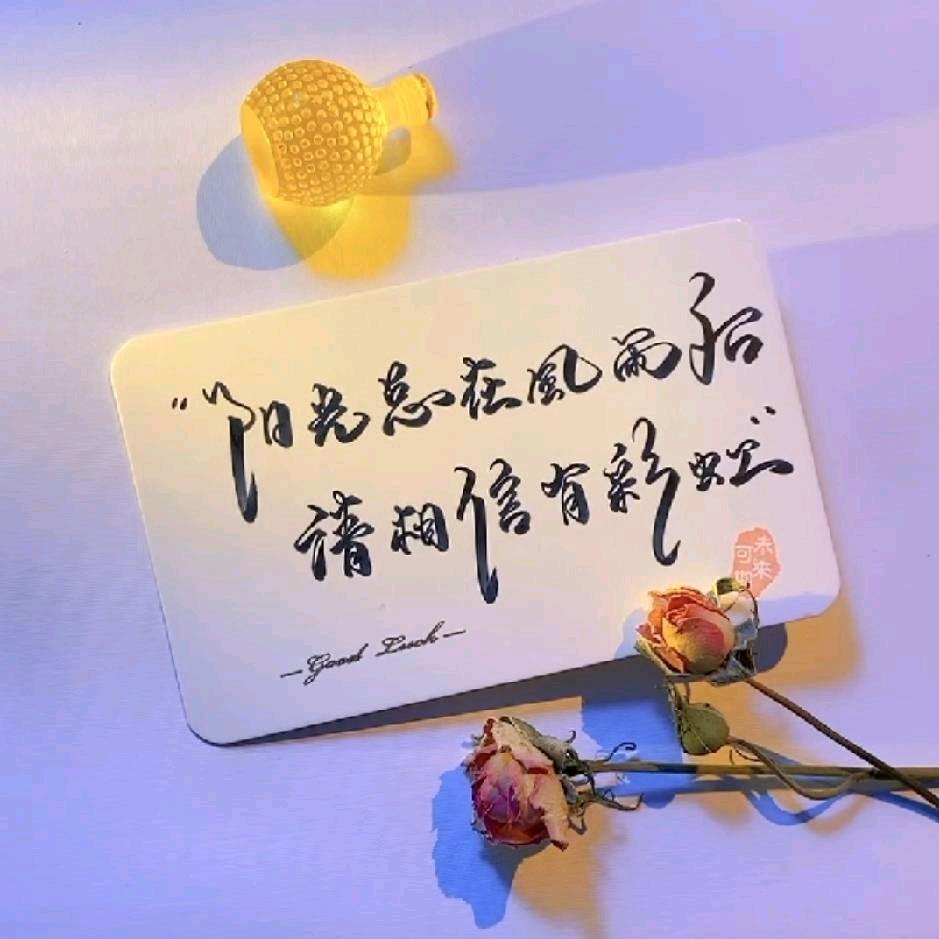 "阳光总在風雨后
请相信有彩虹"
—Good Luck—
未来
可